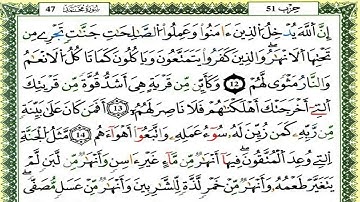 47 سُورَةُ مُحَمَّدٍ حِزْب 51
إِنَّ اللَّهَ يُدْخِلُ الَّذِينَ ءَامَنُوا وَعَمِلُوا الصَّٰلِحَٰتِ جَنَّٰتٍ تَجْرِي مِن
تَحْتِهَا الْأَنْهَٰرُ وَالَّذِينَ كَفَرُوا يَتَمَتَّعُونَ وَيَأْكُلُونَ كَمَا تَأْكُلُ الْأَنْعَٰمُ
وَالنَّارُ مَثْوًى لَّهُمْ 12 وَكَأَيِّن مِّن قَرْيَةٍ هِيَ أَشَدُّ قُوَّةً مِّن قَرْيَتِكَ
الَّتِي أَخْرَجَتْكَ أَهْلَكْنَٰهُمْ فَلَا نَاصِرَ لَهُمْ 13 أَفَمَن كَانَ عَلَىٰ بَيِّنَةٍ
مِّن رَّبِّهِ كَمَن زُيِّنَ لَهُ سُوءُ عَمَلِهِ وَاتَّبَعُوا أَهْوَاءَهُم 14 مَّثَلُ الْجَنَّةِ
الَّتِي وُعِدَ الْمُتَّقُونَ فِيهَا أَنْهَٰرٌ مِّن مَّاءٍ غَيْرِ ءَاسِنٍ وَأَنْهَٰرٌ مِّن لَّبَنٍ لَّمْ
يَتَغَيَّرْ طَعْمُهُ وَأَنْهَٰرٌ مِّنْ خَمْرٍ لَّذَّةٍ لِّلشَّٰرِبِينَ وَأَنْهَٰرٌ مِّنْ عَسَلٍ مُّصَفًّى